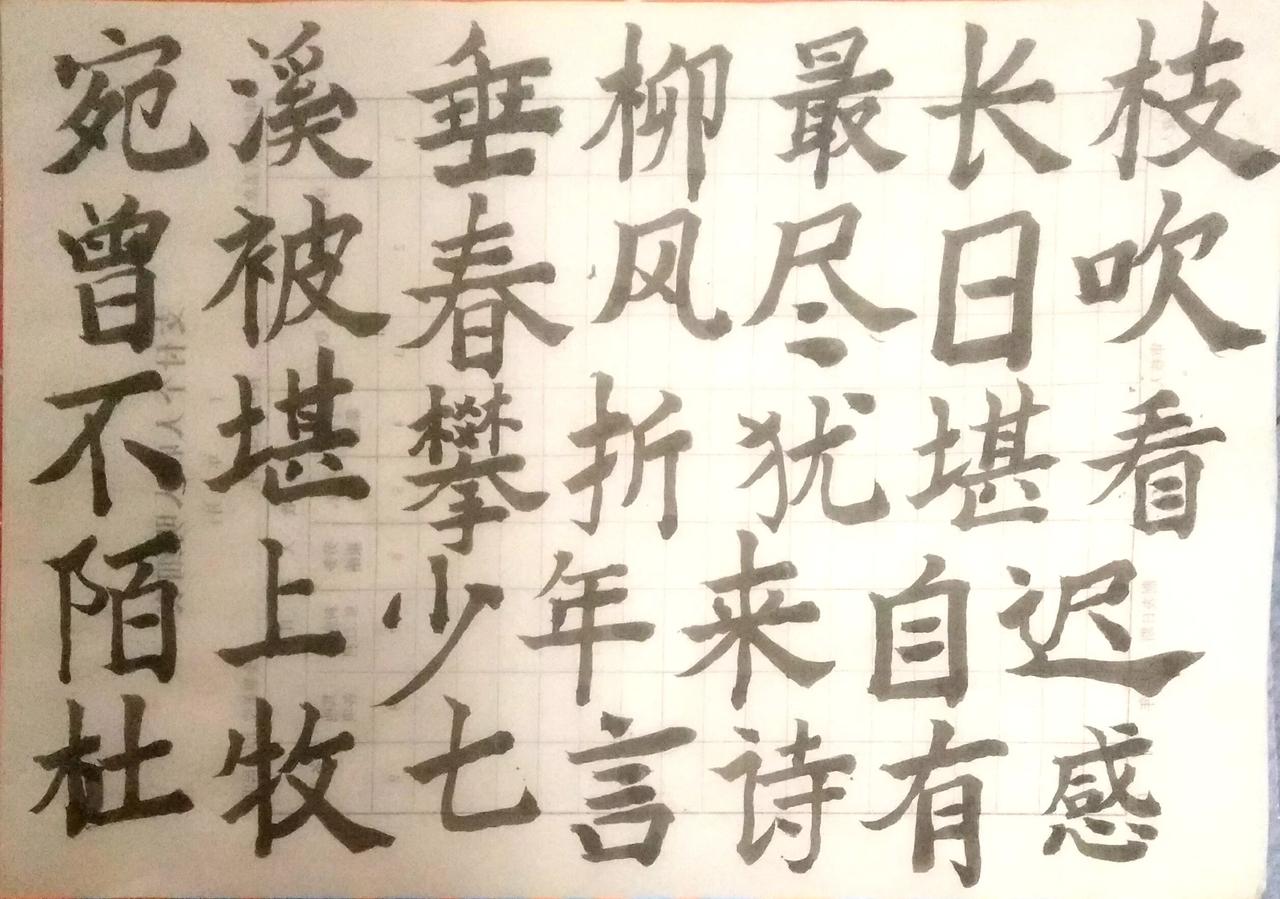 宛溪垂柳最长枝
曾被春风尽日吹
不堪攀折犹堪看
陌上少年来自迟
杜牧七言诗有感